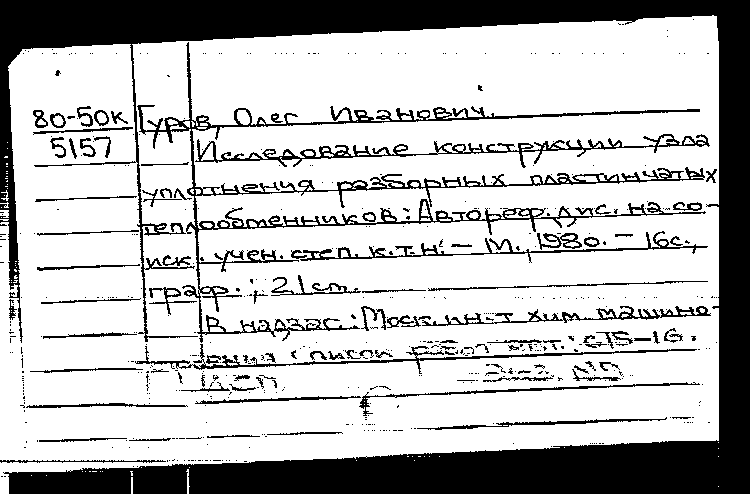 80-50к Гуров, Олег Иванович.
5157 Исследование конструкции узла
уплотнения разборных пластинчатых
теплообменников: Автореф. дис. на со-
иск. учен. степ. к.т.н. – М., 1980. – 16с.,
граф.; 21см.
В надзаг.: Моск. ин-т хим. машино-
строения Список работ авт.: с15-16.
ДСП